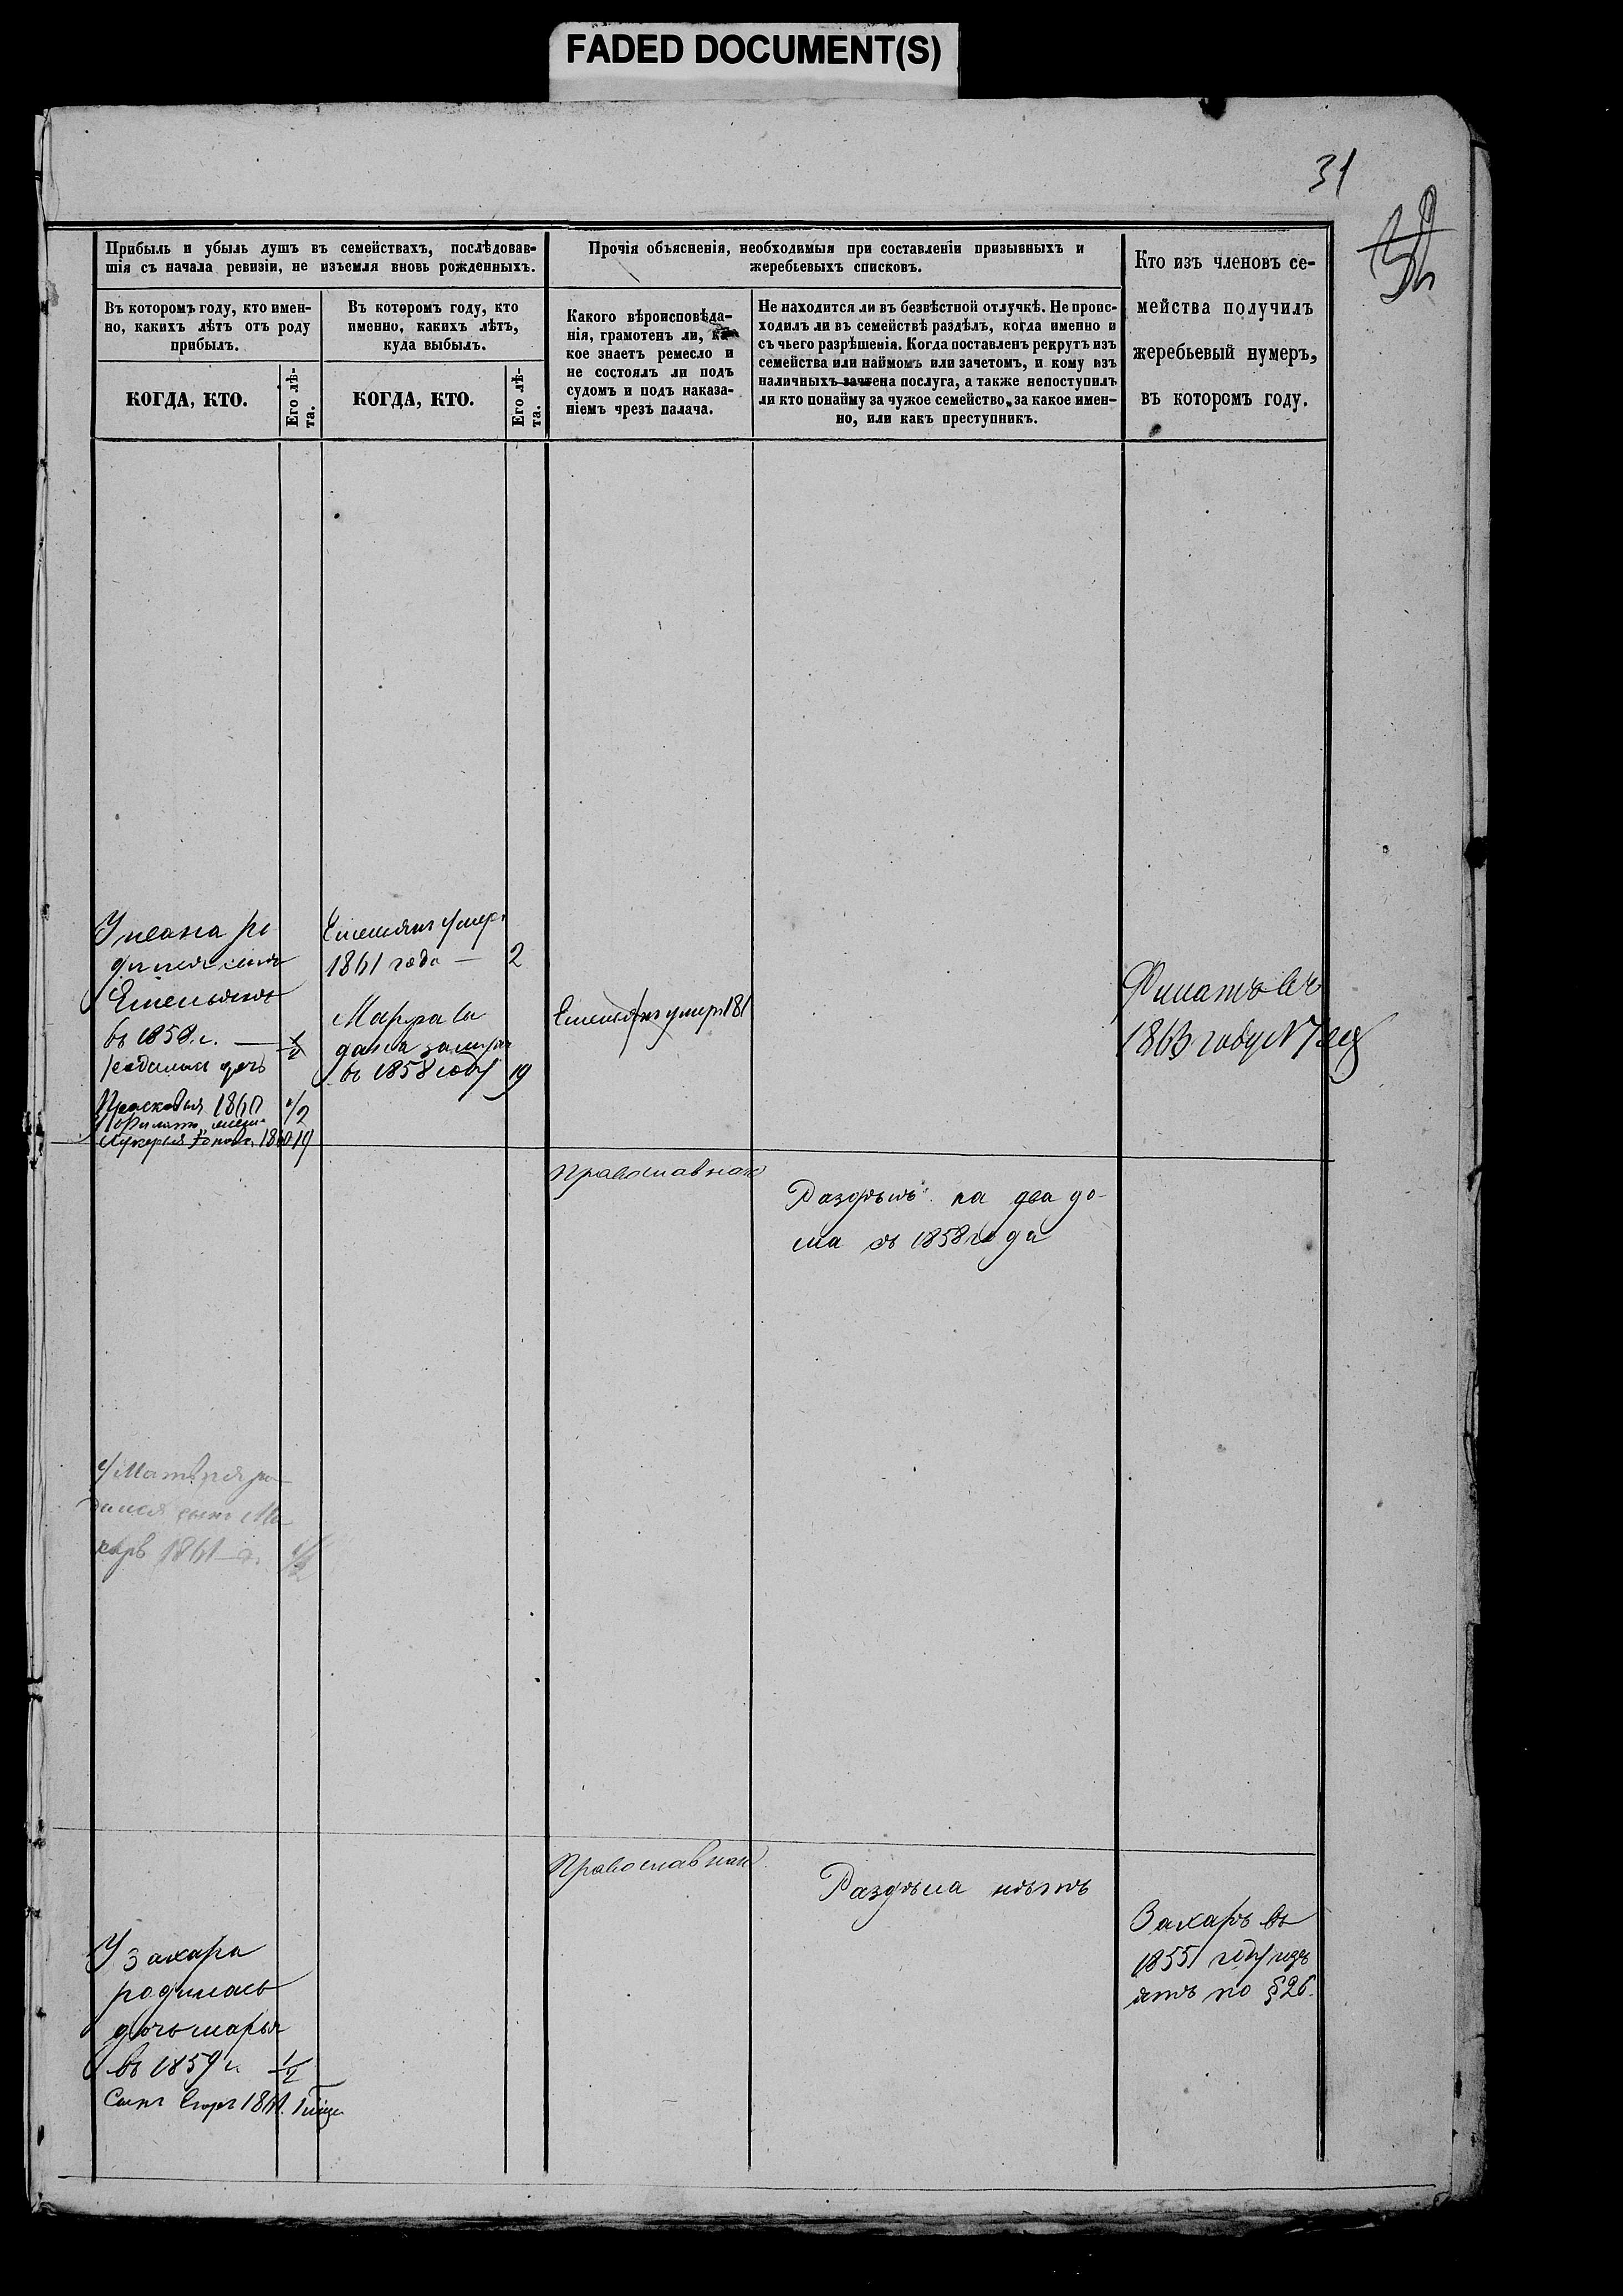 FADED DOCUMENT(S)
31
Прибыль и убыль душъ въ семействахъ, послѣдовав-
шія съ начала ревизіи, не изъемля вновь рожденныхъ.
Въ которомъ году, кто имен-
но, какихъ лѣтъ отъ роду
прибылъ.
КОГДА, КТО.
Его лѣ-
та.
Въ которомъ году, кто
именно, какихъ лѣтъ,
куда выбылъ.
КОГДА, КТО.
Его лѣ-
та.
Прочія объясненія, необходимыя при составленіи призывныхъ и
жеребьевыхъ списковъ.
Какого вѣроисповѣда-
нія, грамотенъ ли, ка-
кое знаетъ ремесло и
не состоялъ ли подъ
судомъ и подъ наказа-
ніемъ чрезъ палача.
Не находится ли въ безвѣстной отлучкѣ. Не проис-
ходилъ ли въ семействѣ раздѣлъ, когда именно и
съ чьего разрѣшенія. Когда поставленъ рекрутъ изъ
семейства или наймомъ или зачетомъ, и кому изъ
наличныхъ зачтена послуга, а также непоступилъ
ли кто понайму за чужое семейство, за какое имен-
но, или какъ преступникъ.
Кто изъ членовъ се-
мейства получилъ
жеребьевый нумеръ,
въ которомъ году.
Емельянъ
въ 1858 г. — 1/2
дочь
Прасковья 1860 1/2
Лукерья 19
Емельянъ умеръ
1861 года — 2
Марѳа вы
дана замужъ
въ 1858 году 19
Емельянъ умеръ 181
Филатъ въ
1863 году N
Православнаго
Раздѣлъ на два до-
ма съ 1858 года
У Матвея ро
дился сынъ Ма
каръ 1861 г. 1/2
Православнаго
Раздѣла нѣтъ
Захаръ въ
1855 году изъ
ятъ по §26.
У Захара
родилась
дочь Марья
въ 1859 г. 1/2
Сынъ Егоръ 1861.